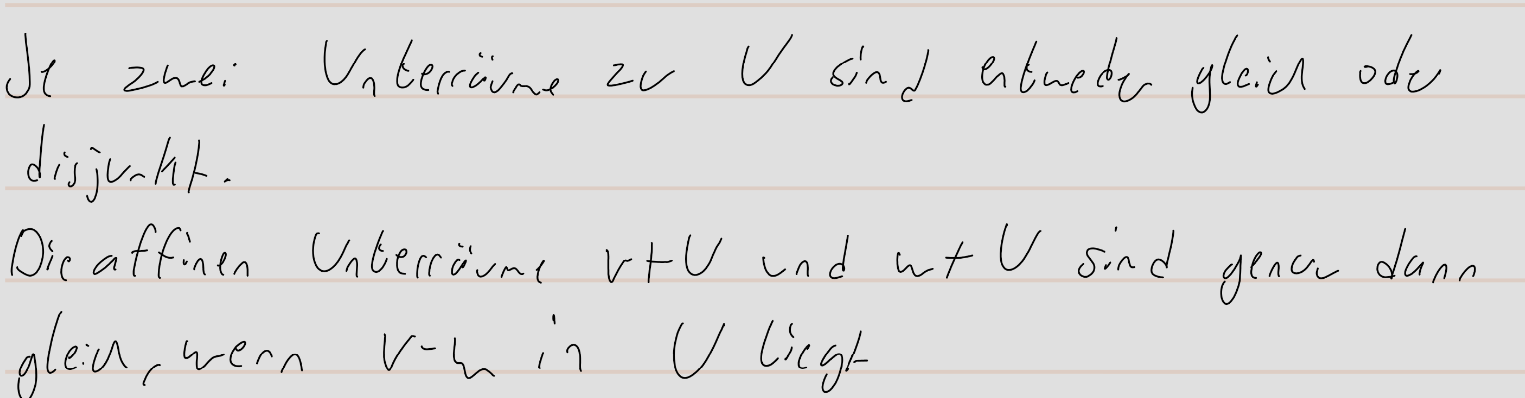 Je zwei Unterräume zu U sind entweder gleich oder
disjunkt.
Die affinen Unterräume v+U und w+U sind genau dann
gleich, wenn v-w in U liegt